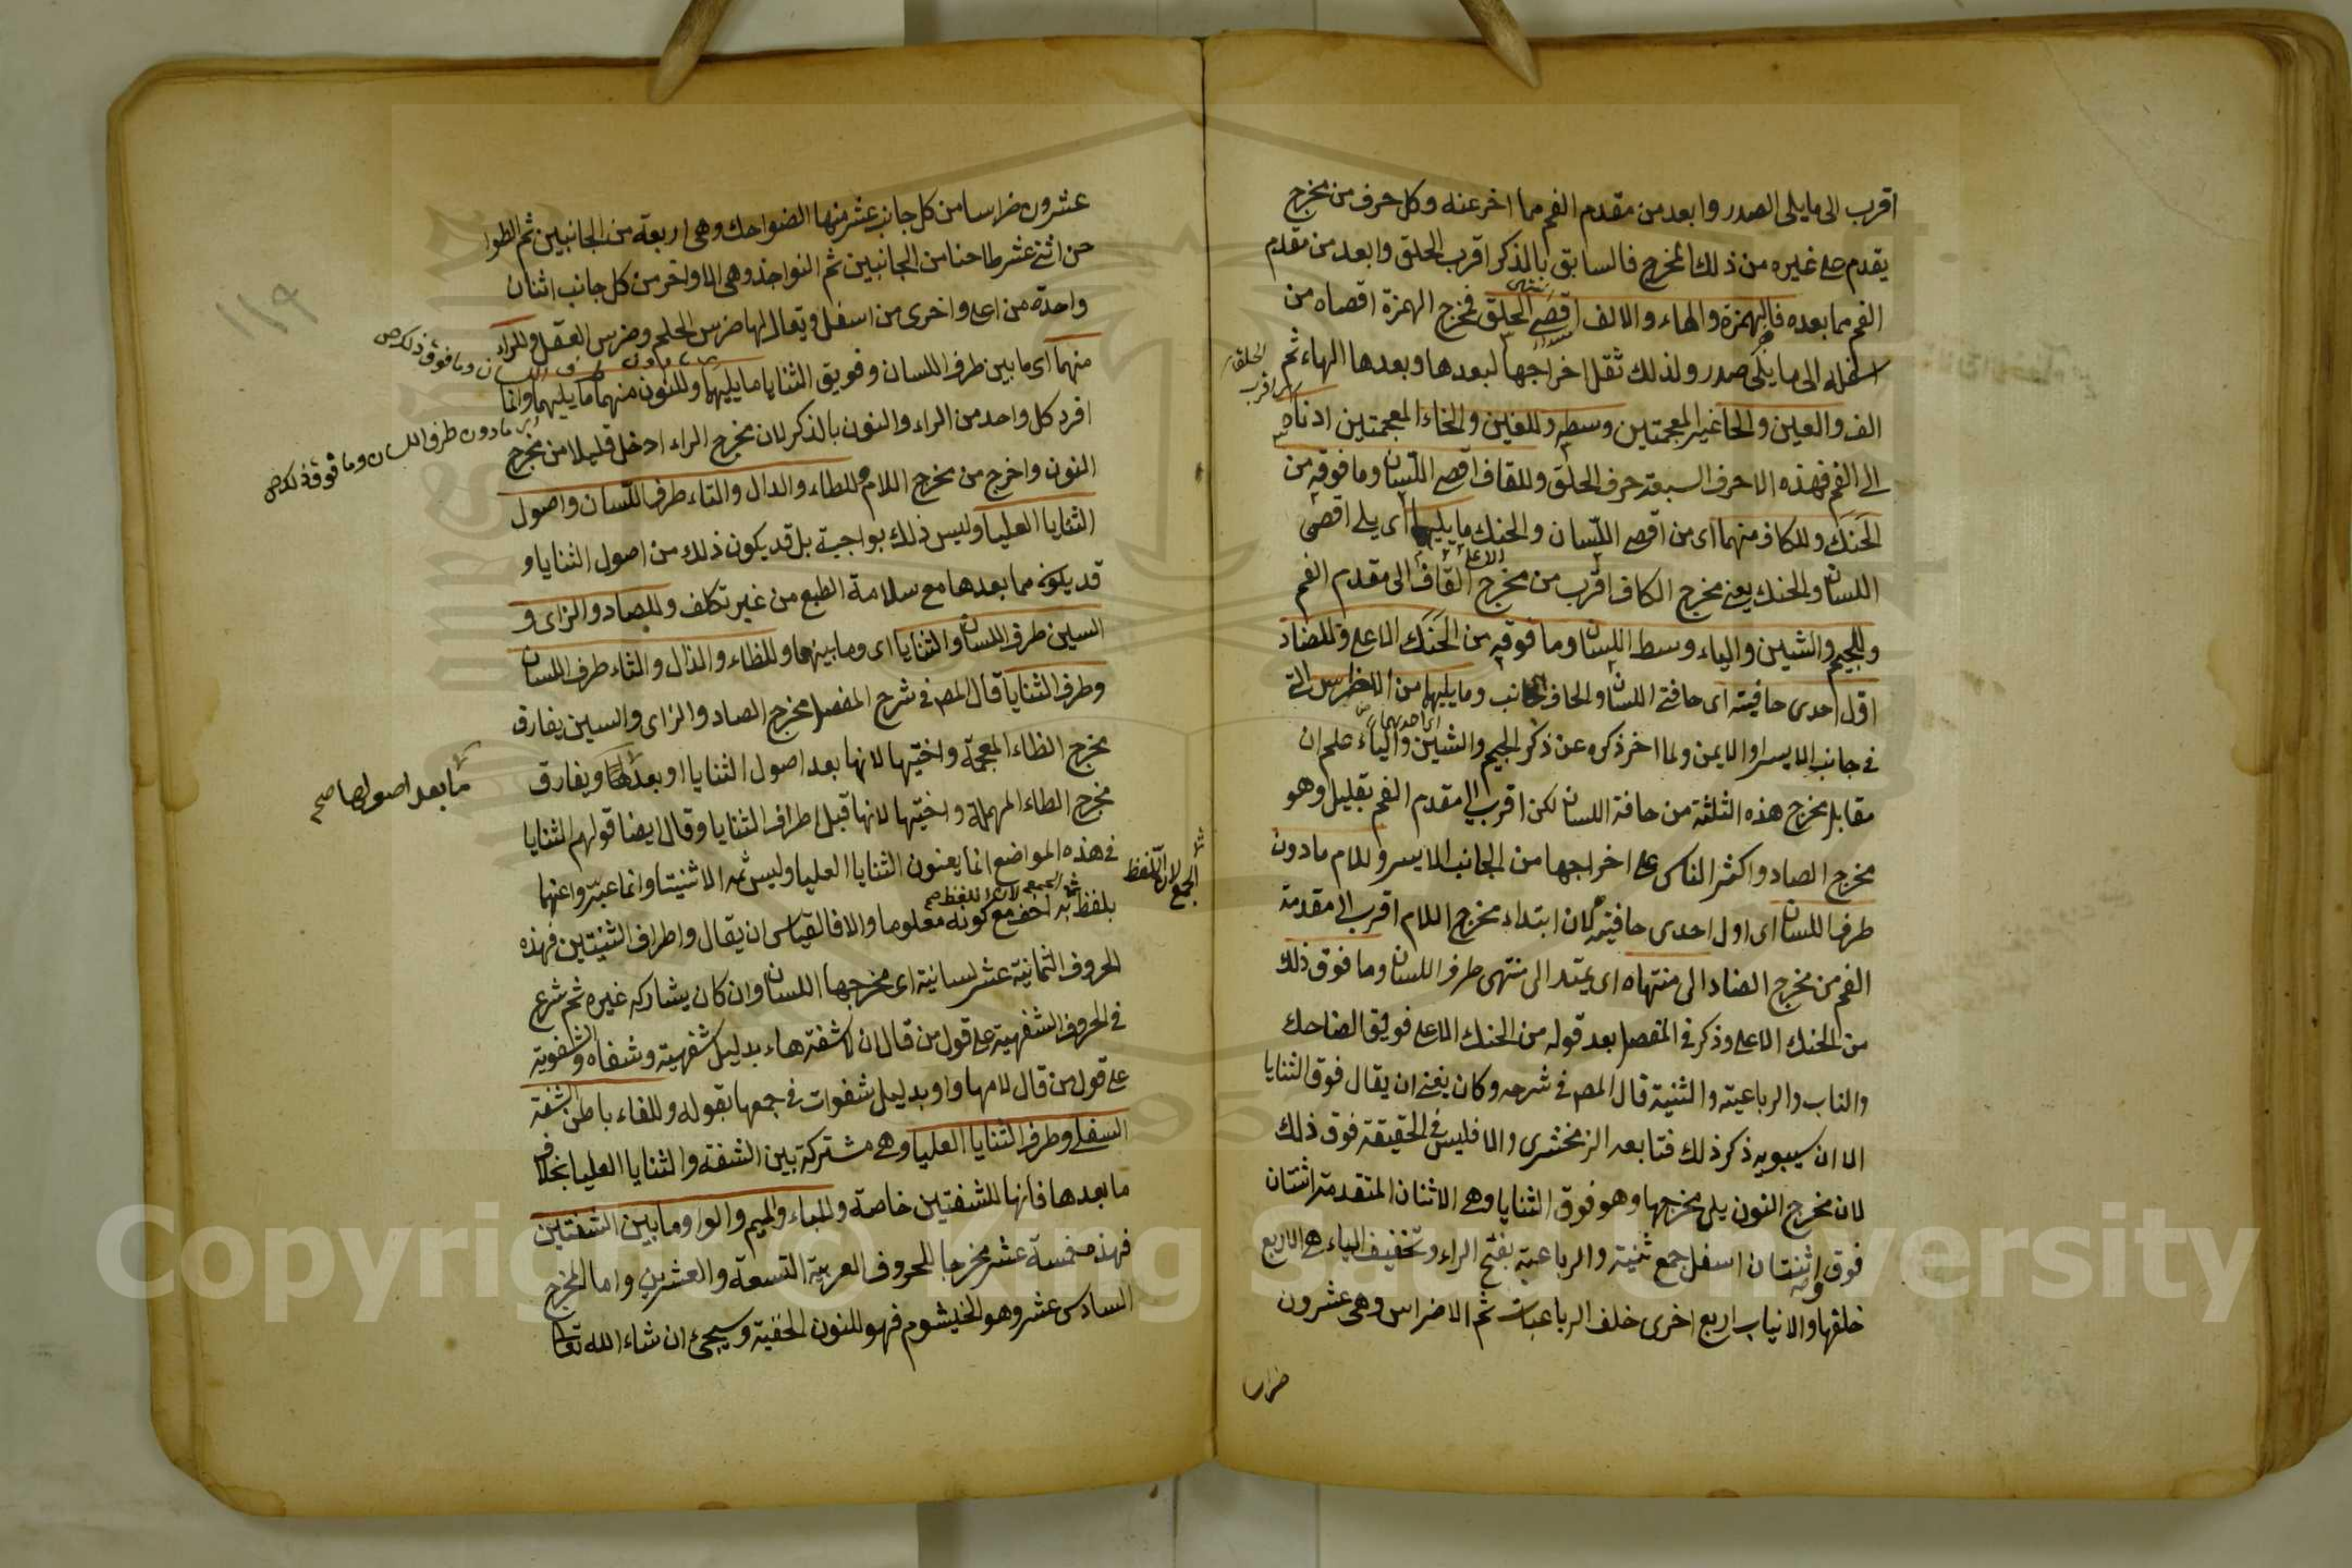 اقرب الى ما يلى الصدر وابعد من مقدم الفم مما اخر عنه وكل حرف من مخرج
يقدم على غيره من ذلك المخرج فالسابق بالذكر اقرب الحلق وابعد من مقدم
الفم مما بعده فالهمزة والهاء والالف اقصى الحلق فمخرج الهمزة اقصاه من
اسفله الى ما يلى صدر ولذلك ثقل اخراجها لبعدها وبعدها الهاء ثم
الف والعين والحا غير المعجمتين وسطه وللغين والخاء المعجمتين ادناه
الى الفم فهذه الاحرف السبعة حرف الحلق وللقاف اقصى اللسان وما فوقه من
الحنك وللكاف منهما اى من اقصى اللسان والحنك ما يليهما اى يلى اقصى
اللسان والحنك يعنى مخرج الكاف اقرب من مخرج القاف الى مقدم الفم
وللجيم والشين والياء وسط اللسان وما فوقه من الحنك الاعلى وللضاد
اول احدى حافيته اى حافتى اللسان والحافة الجانب وما يليهما من الاضراس التى
فى جانب الايسر او الايمن ولما اخر ذكره عن ذكر الجيم والشين والياء علم ان
مقابل مخرج هذه الثلثة من حافة اللسان لكن اقرب الى مقدم الفم بقليل وهو
مخرج الصاد واكثر الناس على اخراجها من الجانب الايسر وللام ما دون
طرف اللسان اى اول احدى حافيته لان ابتداء مخرج اللام اقرب الى مقدمة
الفم من مخرج الضاد الى منتهاه اى يمتد الى منتهى طرف اللسان وما فوق ذلك
من الحنك الاعلى وذكر فى المفصل بعد قوله من الحنك الاعلى فويق الضاحك
والناب والرباعية والثنية قال المص فى شرحه وكان يغنى ان يقال فوق الثنايا
الا ان سيبويه ذكر ذلك فتابعه الزمخشرى والا فليس فى الحقيقة فوق ذلك
لان مخرج النون يلى مخرجها وهو فوق الثنايا وهى الاثنان المتقدمة اثنتان
فوق واثنتان اسفل جمع ثنية والرباعية بفتح الراء وتخفيف الياء هى الاربع
خلفها والانياب اربع اخرى خلف الرباعيات ثم الاضراس وهى عشرون
ضراسا
عشرون ضراسا من كل جانب عشر منها الضواحك وهى اربعة من الجانبين ثم الطوا
حن اثنى عشر طاحنا من الجانبين ثم النواجذ وهى الاواخر من كل جانب اثنان
واحدة من اعلى واخرى من اسفل ويقال لها ضرس الحلم وضرس العقل وللراء
منهما اى ما بين طرف اللسان وفويق الثنايا ما يليهما وللنون منهما ما يليهما وانما
افرد كل واحد من الراء والنون بالذكر لان مخرج الراء ادخل قليلا من مخرج
النون واخرج من مخرج اللام وللطاء والدال والتاء طرف اللسان واصول
الثنايا العليا وليس ذلك بواجبة بل قد يكون ذلك من اصول الثنايا و
قد يكون مما بعدها مع سلامة الطبع من غير تكلف وللصاد والزاى و
السين طرف اللسان والثنايا اى وما بينهما وللظاء والذال والثاء طرف اللسان
وطرف الثنايا قال المص فى شرح المفصل مخرج الصاد والزاى والسين يفارق
مخرج الظاء المعجمة واختيها لانها بعد اصول الثنايا او بعدها ويفارق
ما بعد اصولها صح
مخرج الطاء المهملة واختيها لانها قبل اطراف الثنايا وقال ايضا قولهم الثنايا
فى هذه المواضع انما يعنون الثنايا العليا وليس ثمه الا ثنيتا وانما عبروا عنهما
الجمع لان اللفظ
بلفظ به اخف مع كونه معلوما والا فالقياس ان يقال واطراف الثنيتين فهذه
الحروف الثمانية عشر لسانية اى مخرجها اللسان وان كان يشاركه غيره ثم شرع
فى الحروف الشفهية على قول من قال ان لا شفة هاء بدليل شفهية وشفاه والشفوية
على قول من قال لامها واو بدليل شفوات فى جمعها بقوله وللفاء باطن الشفة
السفلى وطرف الثنايا العليا وهى مشتركة بين الشفة والثنايا العليا بخلاف
ما بعدها فانها للشفتين خاصة وللباء والميم والواو ما بين الشفتين
فهذه خمسة عشر مخرجا للحروف العربية التسعة والعشرين واما المخرج
السادس عشر وهو الخيشوم فهو للنون الخفية وسيجئ ان شاء الله تعا
١١٩
Copyright © King Saud University